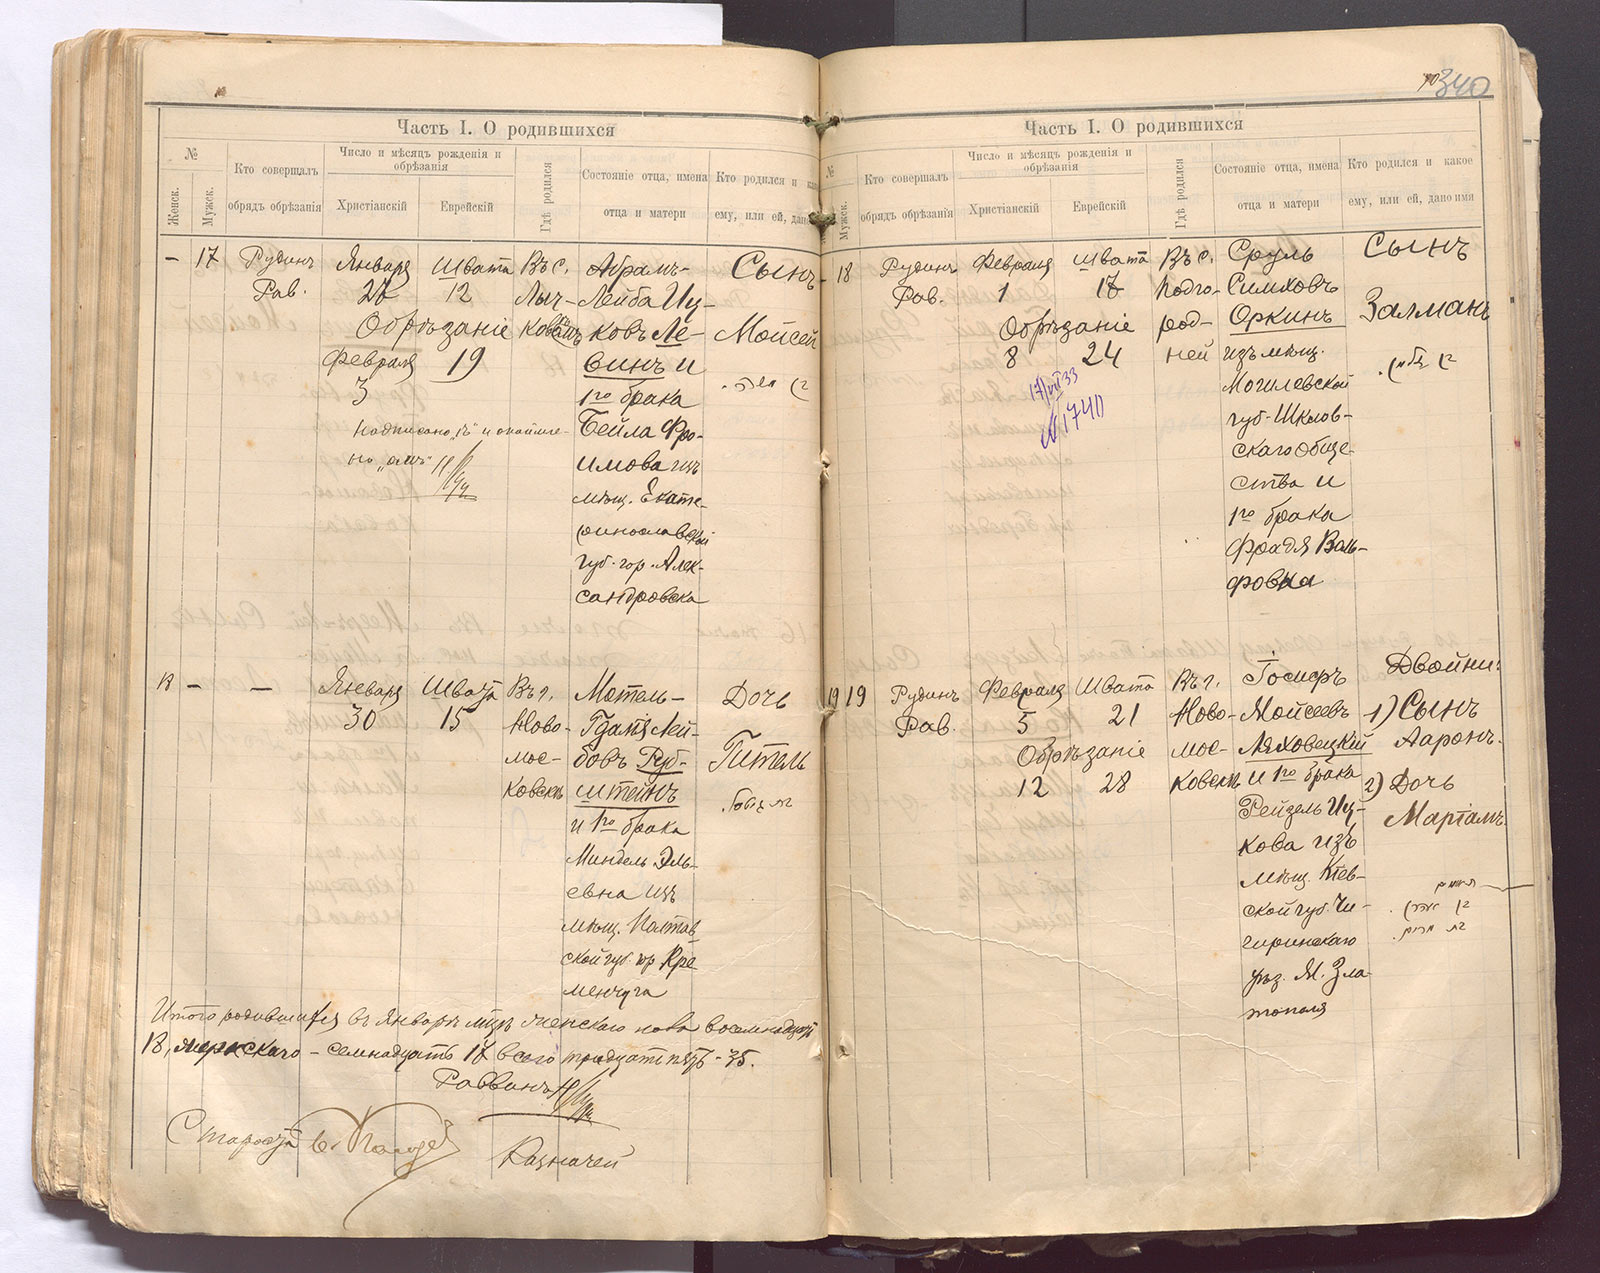 340
Часть I. О родившихся
№
Женск.
Мужск.
Кто совершалъ
обрядъ обрѣзанія
Число и мѣсяцъ рожденія и
обрѣзанія
Христіанскій
Еврейскій
Гдѣ родился
Состояніе отца, имена
отца и матери
Кто родился и какое
ему, или ей, дано
– 17
Рудинъ
Рав.
Января
28
Швата
12
Обрѣзаніе
Февраля
3
19
Надписано
Въ с.
Лыч-
ковѣ
Абрамъ-
Лейба Иц-
ковъ Ле-
винъ и
1го брака
Бейла Фро-
имова изъ
мѣщ. Екате-
ринославской
губ. гор. Алек-
сандровска
Сынъ
Мойсей
18 – –
Января
30
Швата
15
Въ г.
Ново-
мос-
ковскѣ
Мотель-
Гдалія Лей-
бовъ Руб-
штейнъ
и 1го брака
Миндель Эль-
евна изъ
мѣщ. Полтав
ской губ. гор Кре
менчуга
Дочь
Гитель
Итого родившихся въ Январѣ м-цѣ женскаго пола восемнадцать
18, мужскаго – семнадцать 17 всего тридцать пять – 35.
Раввинъ
Староста
Казначей
Часть I. О родившихся
№
Мужск.
Кто совершалъ
обрядъ обрѣзанія
Число и мѣсяцъ рожденія и
обрѣзанія
Христіанскій
Еврейскій
Гдѣ родился
Состояніе отца, имена
отца и матери
Кто родился и какое
ему, или ей, дано имя
– 18
Рудинъ
Рав.
Февраля
1
Швата
17
Обрѣзаніе
8
24
17/VII 33
№ 1740
Въ с.
Подго-
род-
ней
Сруль
Симховъ
Оркинъ
изъ мѣщ.
Могилевской
губ. Шклов-
скаго обще-
ства и
1го брака
Фрадя Воль-
фовна
Сынъ
Залманъ
19 19
Рудинъ
Рав.
Февраля
5
Швата
21
Обрѣзаніе
12
28
Въ г.
Ново-
мос-
ковскѣ
Іосифъ
Мойсеевъ
Ляховецкій
и 1го брака
Рейзель Иц-
кова изъ
мѣщ. Кіев-
ской губ. Чи-
гиринскаго
уѣз. М. Зла-
тополя
Двойни:
1) Сынъ
Ааронъ.
2) Дочь
Маріамъ.
תאומים
בן אהרן
בת מרים